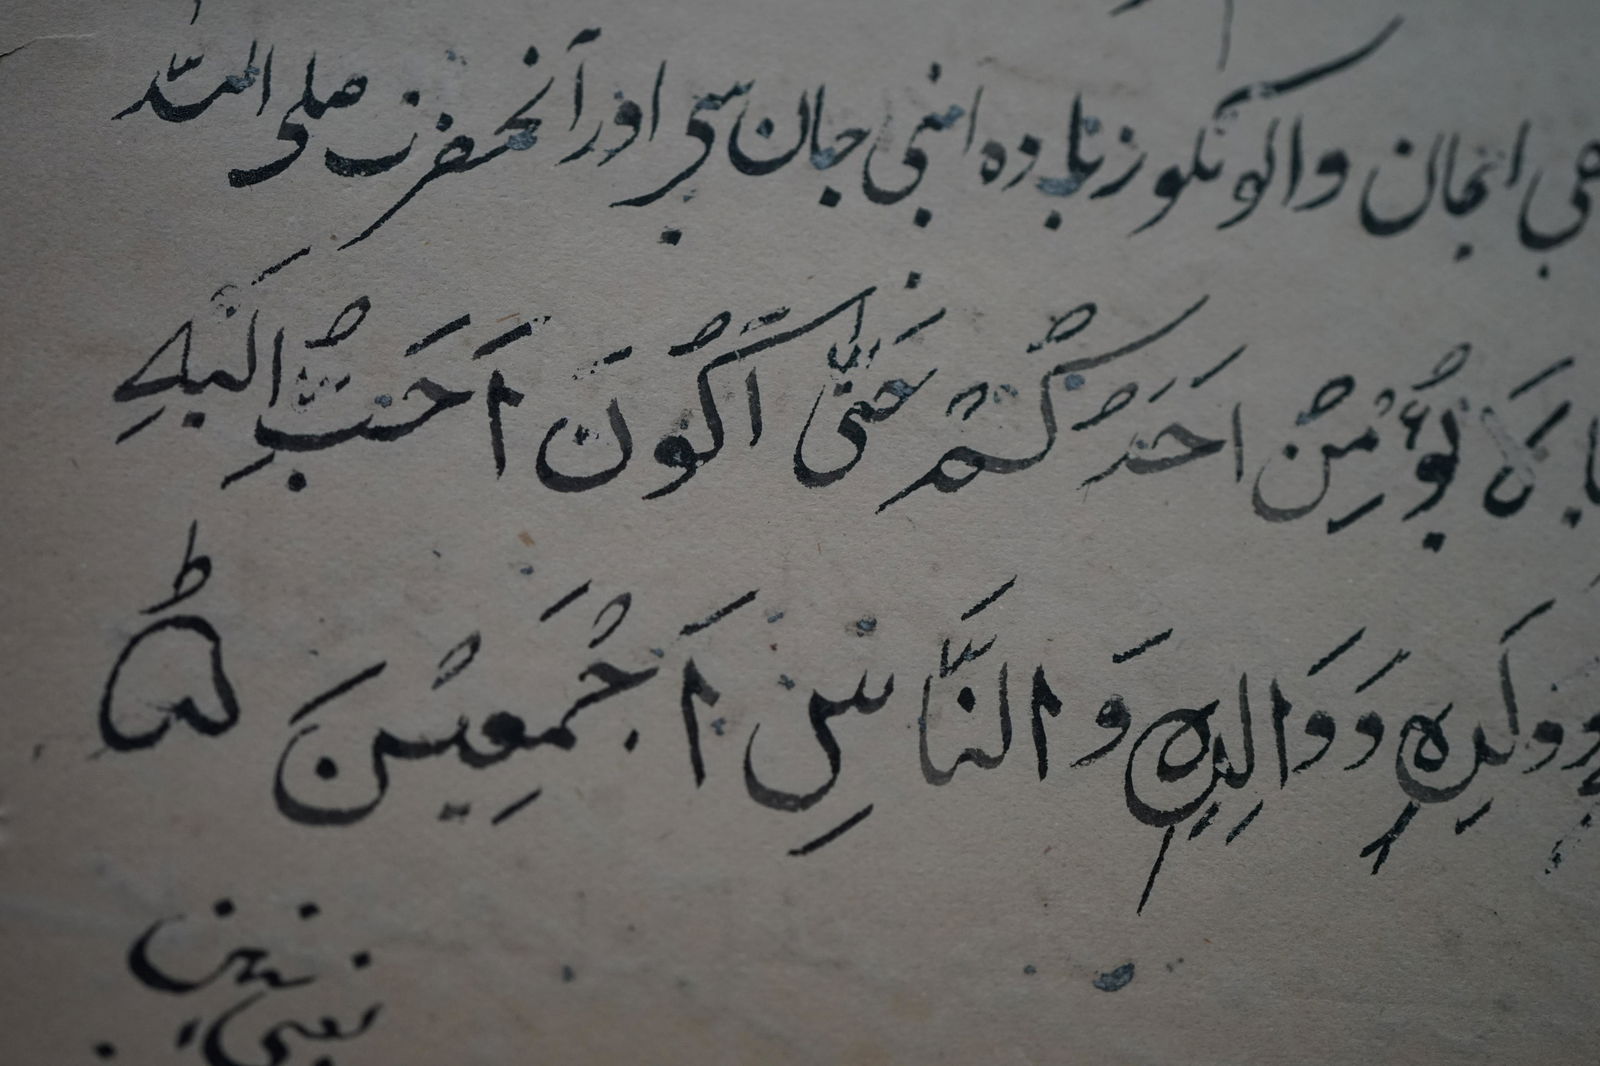 ہی ایمان والونکو زیادہ اپنی جان سی اور آنحضرت صلی اللہ
لَا یُؤْمِنُ اَحَدُکُمْ حَتّٰی اَکُوْنَ اَحَبُّ اِلَیْہِ
وَوَلَدِہٖ وَوَالِدِہٖ وَ النَّاسِ اَجْمَعِیْنَ ط
یعنی